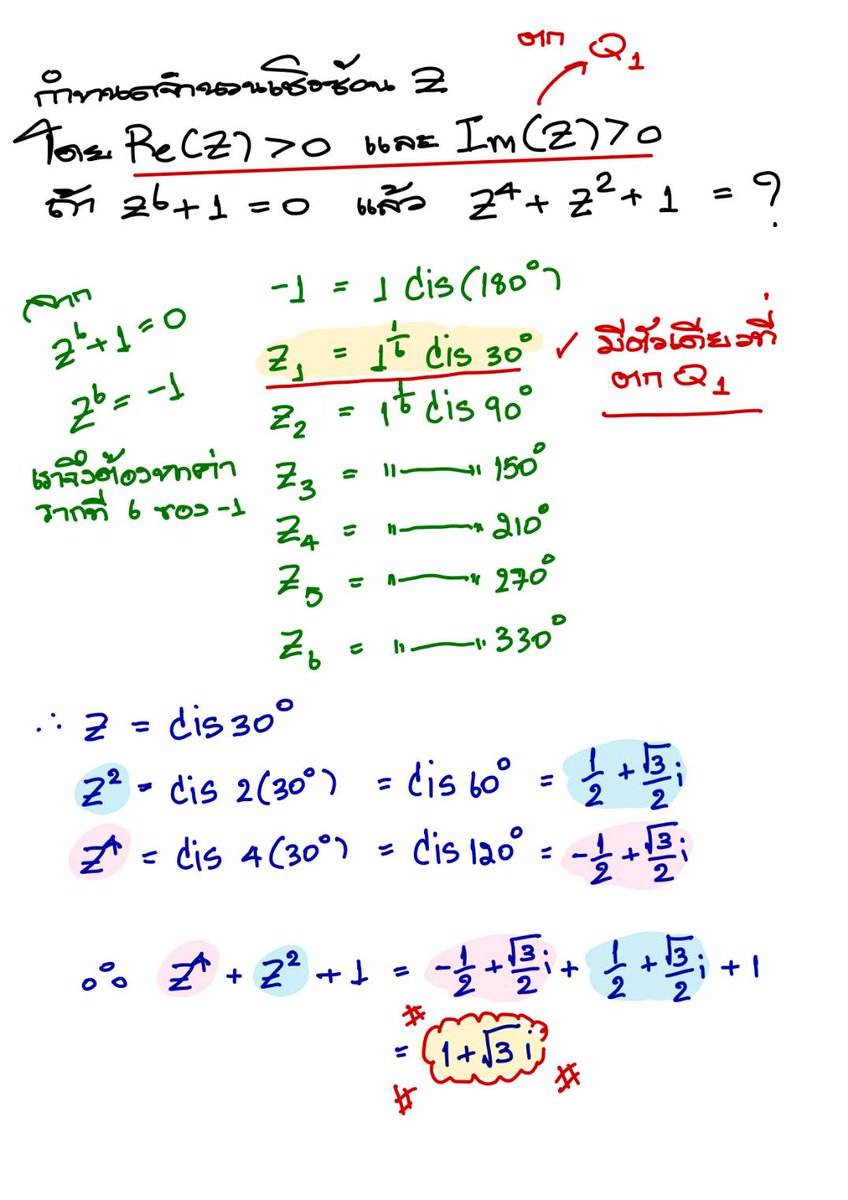 ตก Q₁
กำหนดจำนวนเชิงซ้อน Z
โดย Re(Z)>0 และ Im(Z)>0
ถ้า Z⁶+1 = 0 แล้ว Z⁴+ Z²+ 1 = ?
จาก
Z⁶+1 = 0
Z⁶ = -1
เราจึงต้องหาค่า
รากที่ 6 ของ -1
-1 = 1 cis(180°)
Z₁ = 1^(1/6) cis 30° ✓ มีตัวเดียวที่
ตก Q₁
Z₂ = 1^(1/6) cis 90°
Z₃ = "——" 150°
Z₄ = "——" 210°
Z₅ = "——" 270°
Z₆ = "——" 330°
∴ Z = cis 30°
Z² = cis 2(30°) = cis 60° = 1/2 + √3/2 i
Z⁴ = cis 4(30°) = cis 120° = -1/2 + √3/2 i
∴ Z⁴ + Z² + 1 = -1/2 + √3/2 i + 1/2 + √3/2 i + 1
= 1+√3 i